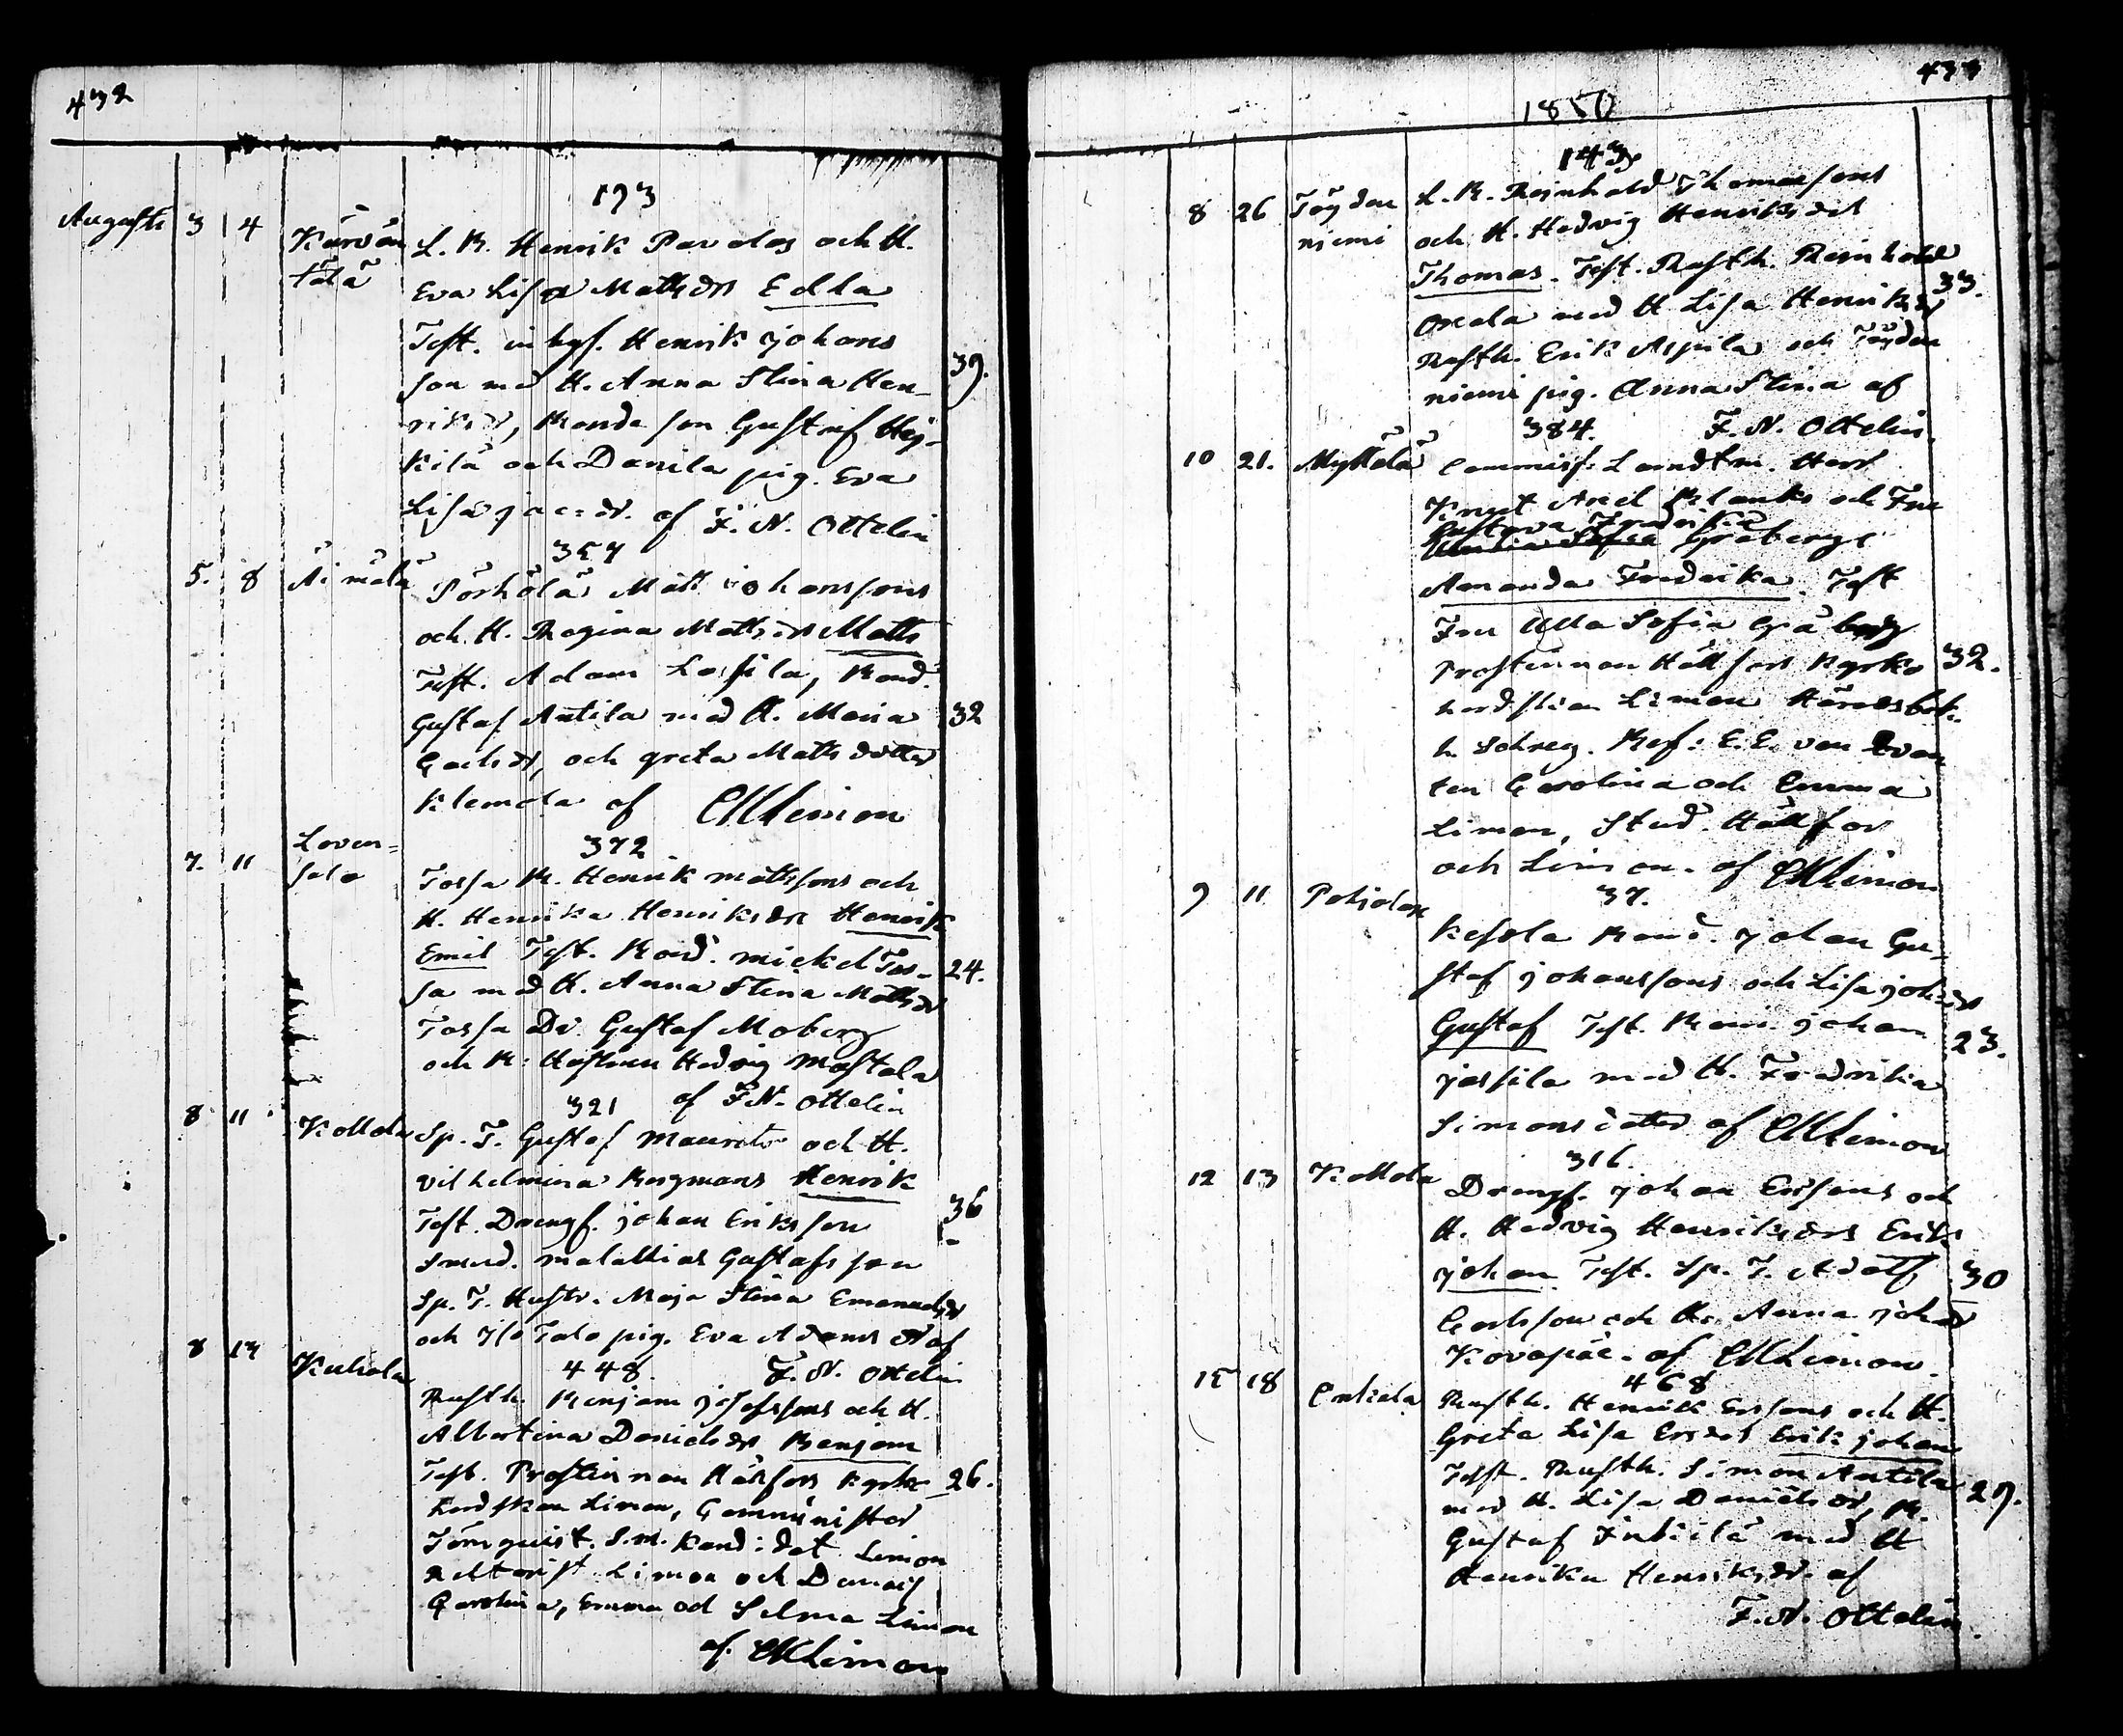 432
193
Augusti 3 4 Kärvän L. B. Henrik Pavolas och H.
tälä Eva Lisa Matsdrs Edla
Test. inhys. Henrik Johans
son med H. Anna Stina Hen- 39.
riksdr, Bonde son Gustaf Hej-
kilä och Danila pig. Eva
Lisa Jac:dr. af F. N. Ottelin
357
5. 8 Äimälä Pörhölä Matt Johanssons
och H. Regina Mattsdrs Matts
Test. Adam Lassila, Bond.
Gustaf Antila med H. Maria 32
Carlsdr, och Greta Matts dotter
Klemola af CMLimon
Loven=
372
7. 11 salo Tossa B. Henrik Mattssons och
H. Henrika Henriksdrs Henrik
Emil Test. Bond. Mickel Tos- 24.
sa med H. Anna Stina Mattsdr
Tossa Dr. Gustaf Moberg
och B: Hustrun Hedvig Mastola
af F.N. Ottelin
321
8 11 Kollola Sp. T. Gustaf Maurits och H.
Vilhelmina Bergmans Henrik
Test. Drengs. Johan Eriksson 36
Smed. Malakias Gustafsson
Sp. T. Hustr. Maja Stina Emanuelsdr
och Iso Talo pig. Eva Adams dr af
8 14 Kuhola 448. F. N. Ottelin
Rusth. Benjam Josefssons och H.
Albertina Danielsdrs Benjam
Test. Prostinnan Hällfors Kyrko 26.
herdskan Limon, Comminister
Törnquist. S.M. Kand:dat Limon
Limon och Demois
Carolina, Emma och Selma Limon
af CMLimon
433
1850
143
8 26 Töyden L. B. Reinhold Thomassons
niemi och H. Hedvig Henriksdrs
Thomas. Test. Rusth. Reinhold 33.
Oxala med H Lisa Henriksdr
Rusth. Erik Aspila och Töyden
niemi pig. Anna Stina af
384. F. N. Ottelin
10 21. Myllälä Commiss. Landtm. Herr
Knut Axel Blanks och Fru
Gustava Fredrika
Gråbergs
Amanda Fredrika. Test
Fru Ulla Sofia Gråberg
Prostinnan Hällfors Kyrko 32.
herdskan Limon Häradsbok.
h. Schreg. Ref: E. E. von Qvan
ten Carolina och Emma
Limon, Stud. Hällfor
och Limon. af CMLimon
9 11 Pohjolax 37.
Kesola Bond. Johan Gu-
staf Johanssons och Lisa Joh:drs
Gustaf Test. Bond. Johan 23.
Jassila med H. Fredrika
Simonsdotter af CMLimon
316.
12 13 Kollola Drengs. Johan Erssons och
H. Hedvig Henriksdrs Erik
Johan Test. Sp. T. Adolf 30
Carlsson och H. Anna Johdr
Kovapää. af CMLimon
468
15 18 Enkola Rusth. Henrik Erssons och H.
Greta Lisa Ersdrs Erik Johan
Test. Rusth. Simon Antila 29.
med H. Lisa Danielsdr, B.
Gustaf Inkilä med H
Henrika Henriksdr. af
F. N. Ottelin.